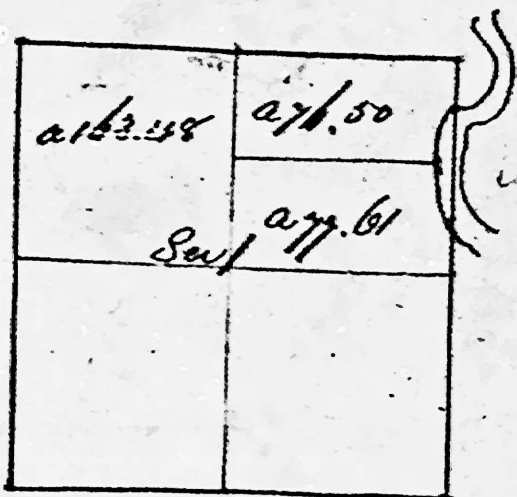 a163.48
a76.50
a77.61
Sec 1